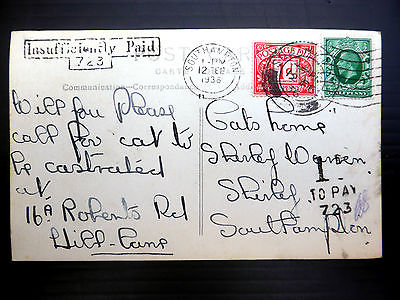 Insufficiently Paid
723
POST
CARTE
Communication—Correspondance
SOUTHAMPTON
1-PM
12 FEB
1936
Will you please
call for cat to
be castrated
at
16A Roberts Rd
Hill-Lane
Cats home
Shirley Warren
Shirley
Southampton
1D
TO PAY
723